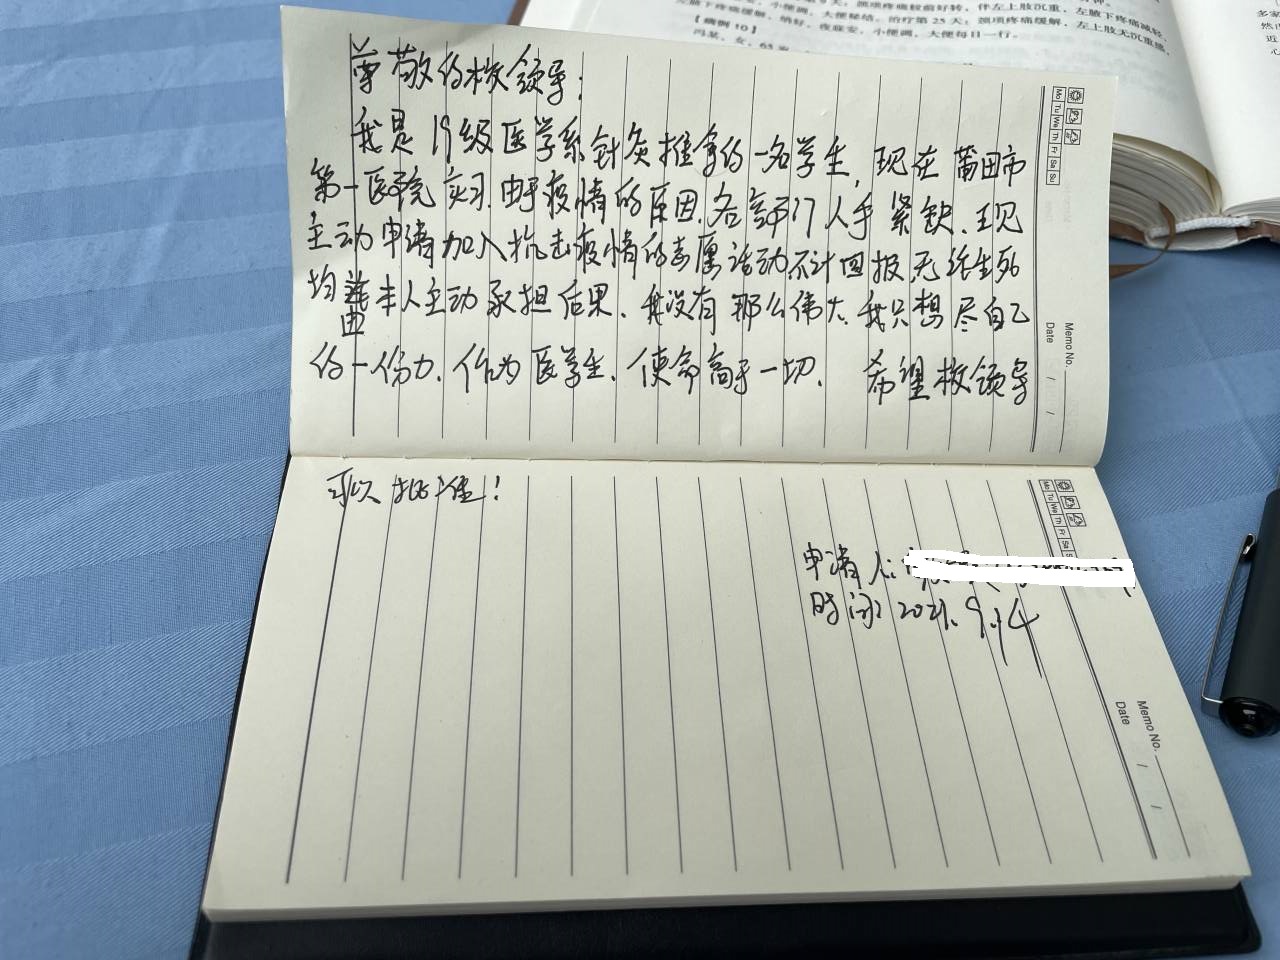 多家
然而
近
心
疼痛减轻,
左腋下疼痛缓解,纳好,夜寐安,小便调,大便秘结。治疗第25天:颈项疼痛缓解,左上肢无沉重感,
小便调,大便每日一行。
【病例10】
冯某,女,
尊敬的校领导:
我是19级医学系针灸推拿的一名学生,现在莆田市
第一医院实习.由于疫情的原因.各部门人手紧缺.现
主动申请加入抗击疫情的志愿活动.不计回报.无论生死
均由本人主动承担后果.我没有那么伟大.我只想尽自己
的一份力.作为医学生.使命高于一切.希望校领导
可以批准!
申请人:
时间:2021.9.14
Mo Tu We Th Fr Sa Su
Memo No.
Date / /
Mo Tu We Th Fr Sa
Memo No.
Date / /